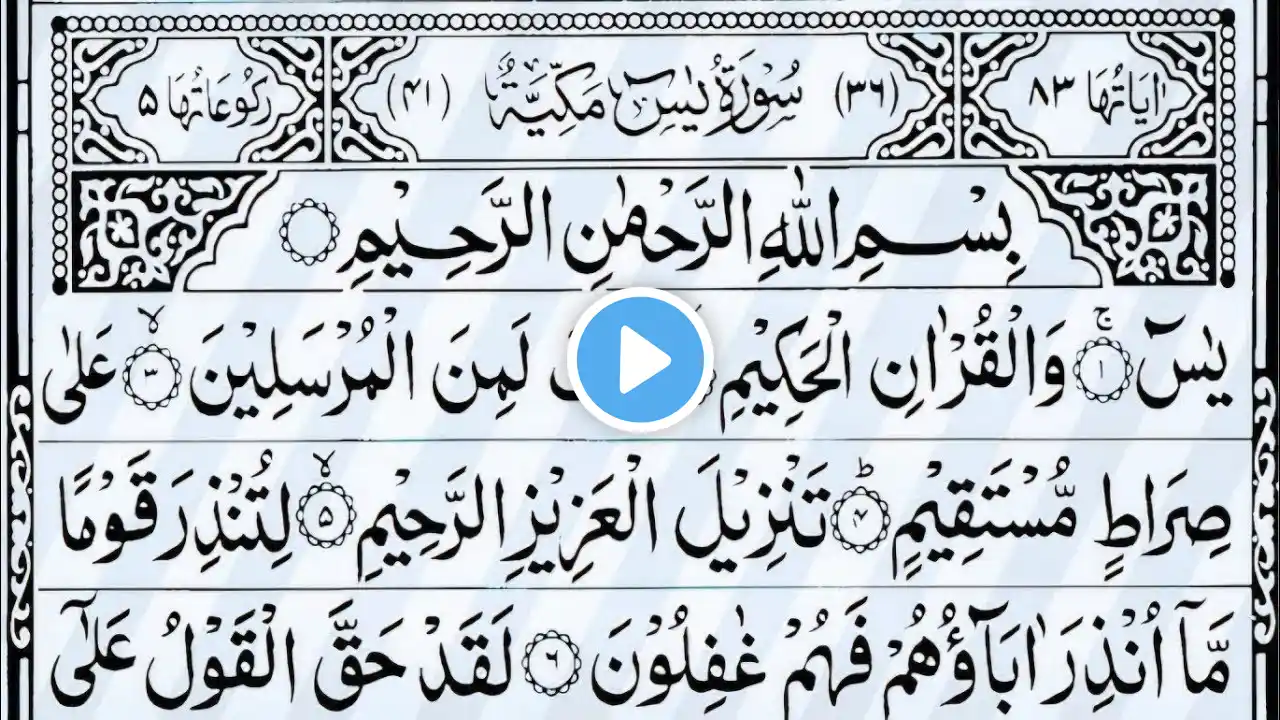 اٰيَاتُهَا ٨٣ (٣٦) سُوْرَةُ يٰسٓ مَكِّيَّةٌ (٤١) رُكُوْعَاتُهَا ٥
بِسْمِ اللّٰهِ الرَّحْمٰنِ الرَّحِيْمِ
يٰسٓ ۚ‏ ١ وَالْقُرْاٰنِ الْحَكِيْمِ لَمِنَ الْمُرْسَلِيْنَ ۙ‏ ٣ عَلٰى
صِرَاطٍ مُّسْتَقِيْمٍ ؕ‏ ٤ تَنْزِيْلَ الْعَزِيْزِ الرَّحِيْمِ ۙ‏ ٥ لِتُنْذِرَ قَوْمًا
مَّاۤ اُنْذِرَ اٰبَآؤُهُمْ فَهُمْ غٰفِلُوْنَ ٦ لَقَدْ حَقَّ الْقَوْلُ عَلٰٓى